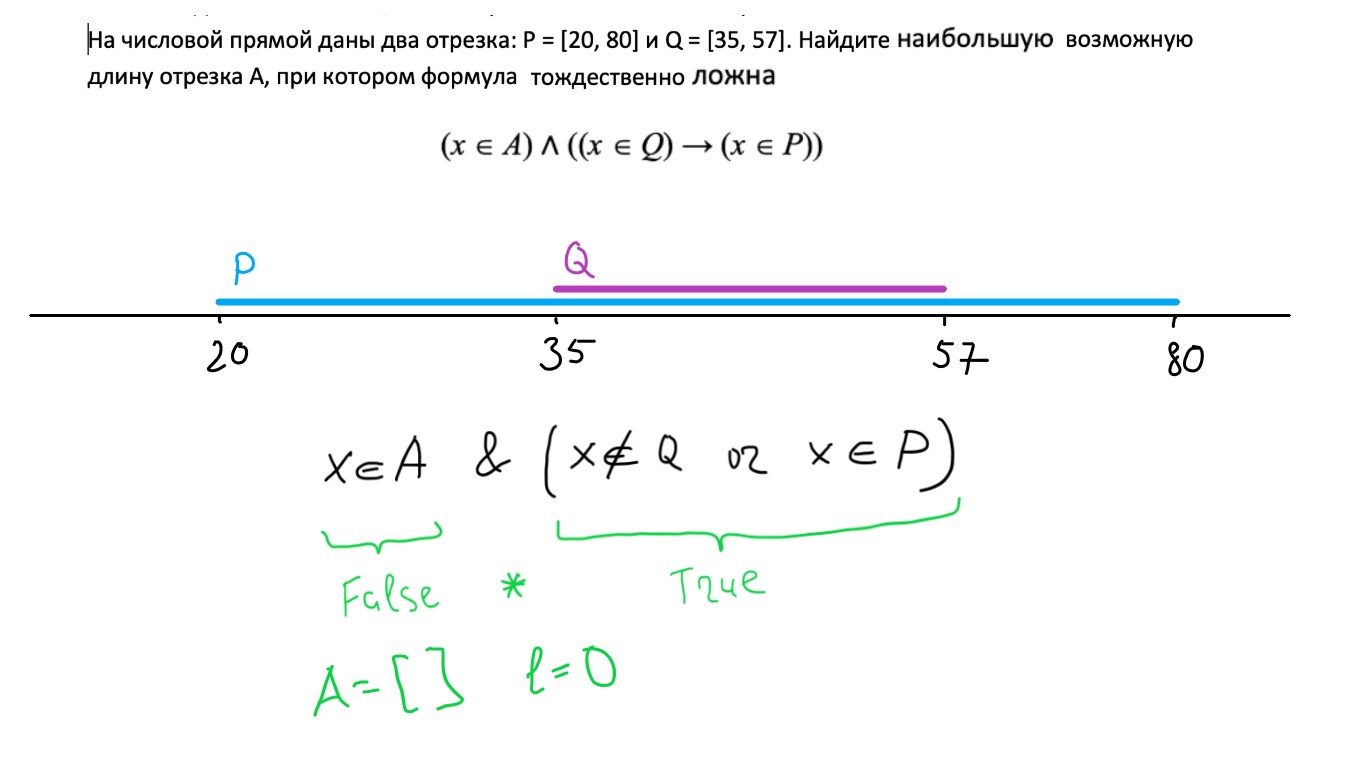 На числовой прямой даны два отрезка: P = [20, 80] и Q = [35, 57]. Найдите наибольшую возможную
длину отрезка A, при котором формула тождественно ложна
(x ∈ A) ∧ ((x ∈ Q) → (x ∈ P))
P Q
20 35 57 80
x∈A & (x∉Q or x∈P)
False * True
A=[] l=0